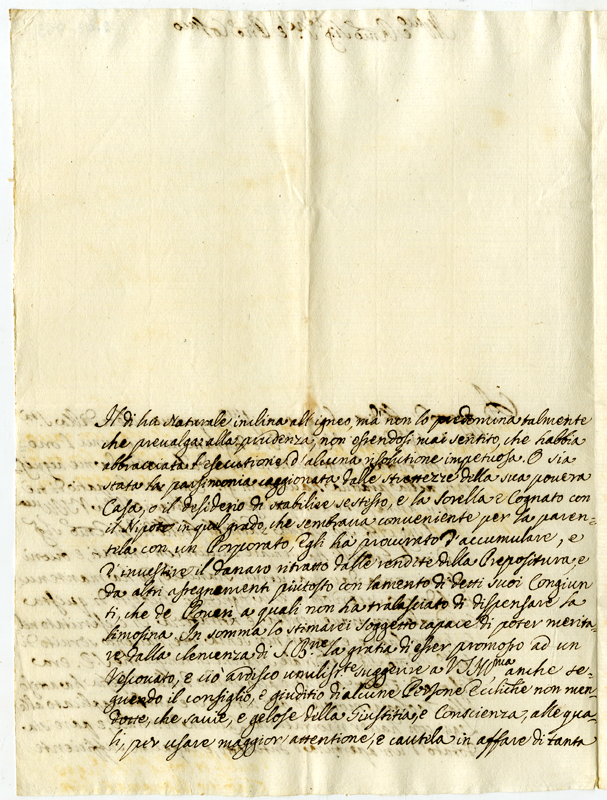 Il di ha Naturale inclina all'igneo, mà non lo predomina talmente
che prevalga alla prudenza, non essendosi mai sentito, che habbia
abbracciata l'esecutione d'alcuna risolutione impetuosa. O sia
stata la parsimonia caggionata dalle strettezze della sua povera
Casa, o il desiderio di stabilire se stesso, e la Sorella e Cognato con
il Nipote in quel grado, che sembrava conveniente per la paren-
tela con un Porporato, Egli hà procurato d'accumulare, e
d'investire il danaro ritratto dalle rendite della Prepositura, e
da altri assegnamenti piutosto con lamento di detti suoi Congiun
ti, che de Poveri a quali non ha tralasciato di dispensare la
limosina. In somma lo stimarei soggetto capace di poter merita-
re dalla clemenza di S. Bne la gratia di esser promosso ad un
Vescovato, e ciò ardisco umilisste suggerire a V. Illma anche se-
guendo il consiglio, e giuditio di alcune Persone Ecclche non men
dotte, che savie, e gelose della Giustitia, e Conscienza, alle qua-
li, per usare maggior attentione, e cautela in affare di tanta